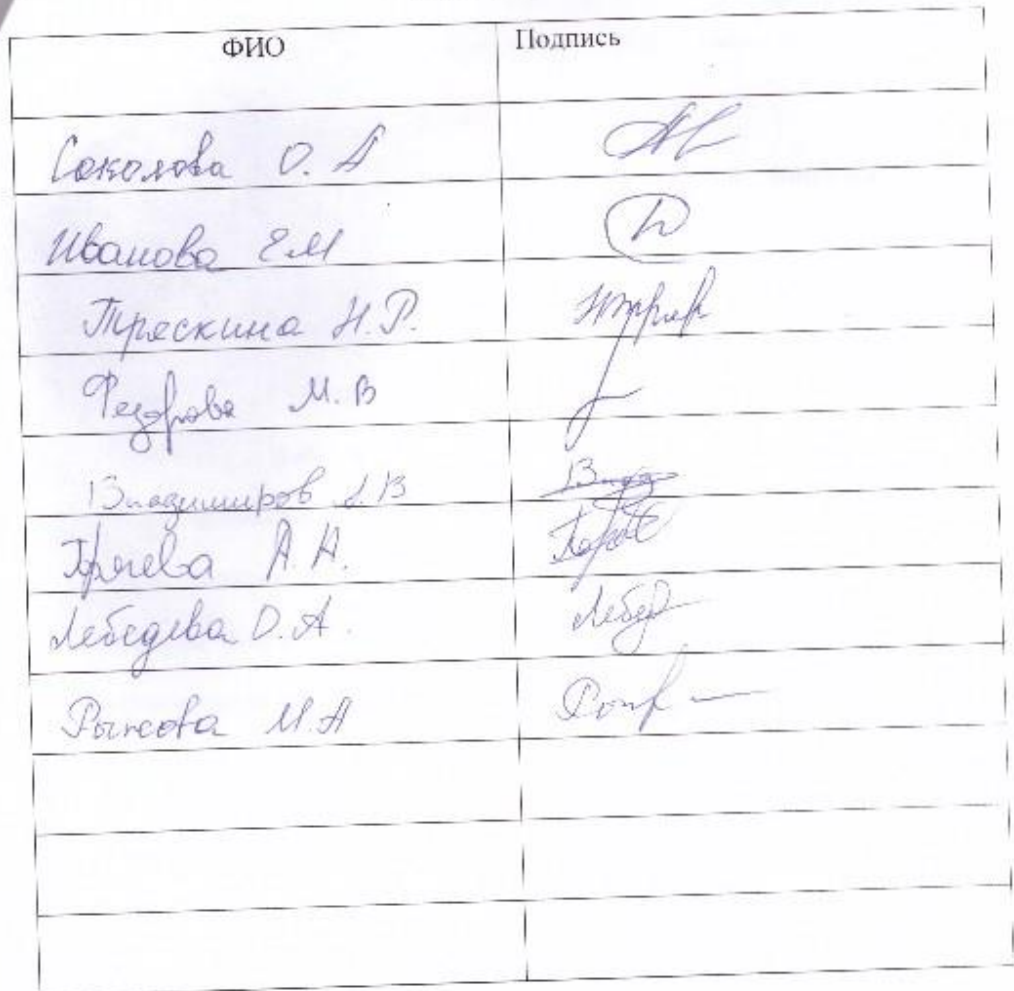 ФИО Подпись
Соколова О. А
Иванова Е.М
Тряскина Н.Р.
Федорова М. В
Владимиров В
А. А.
Лебедева О. А. Лебед
Рыжова М. А